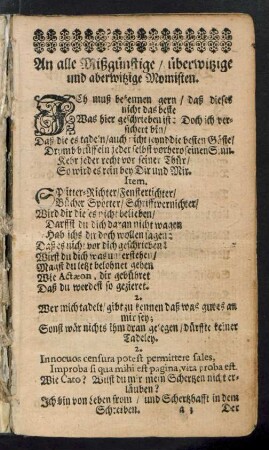 An alle Mißgünstige / überwitzige
und aberwitzige Momisten.
Ich muß bekennen gern / daß dieses
nicht das beste
Was hier geschrieben ist: Doch ich ver-
sichert bin /
Daß die es tadeln / auch nicht seynd die besten Gäste /
Drumb prüfe ein jeder selbst vorhero seinen Sinn.
Kehr jeder recht vor seiner Thür /
So wird es rein bey Dir und Mir.
Item.
Splitter-Richter / Fensterrichter /
Bücher Spötter / Schriffvernichter /
Wird dir dis es nicht belieben /
Darffst du dich daran nicht wagen
Hab ichs dir doch wollen sagen:
Daß es nicht vor dich geschrieben:
Wirst du dich was unterstehen /
Magst du letzt belohnet gehen
Wie Actæon, dir gebühret
Daß du werdest so gezieret.
2.
Wer mich tadelt / gibt zu kennen daß was gutes an
mir sey;
Sonst wär nichts ihm dran gelegen / dürffte keiner
Tadeley.
2.
Innocuos censura potest permittere sales,
Improba si qua mihi est pagina, vita proba est.
Wie Cato? Wilst du mir mein Schertzen nicht er-
läuben?
Ich bin von Leben from / und Schertzhafft in dem
Schreiben. a 3 Der